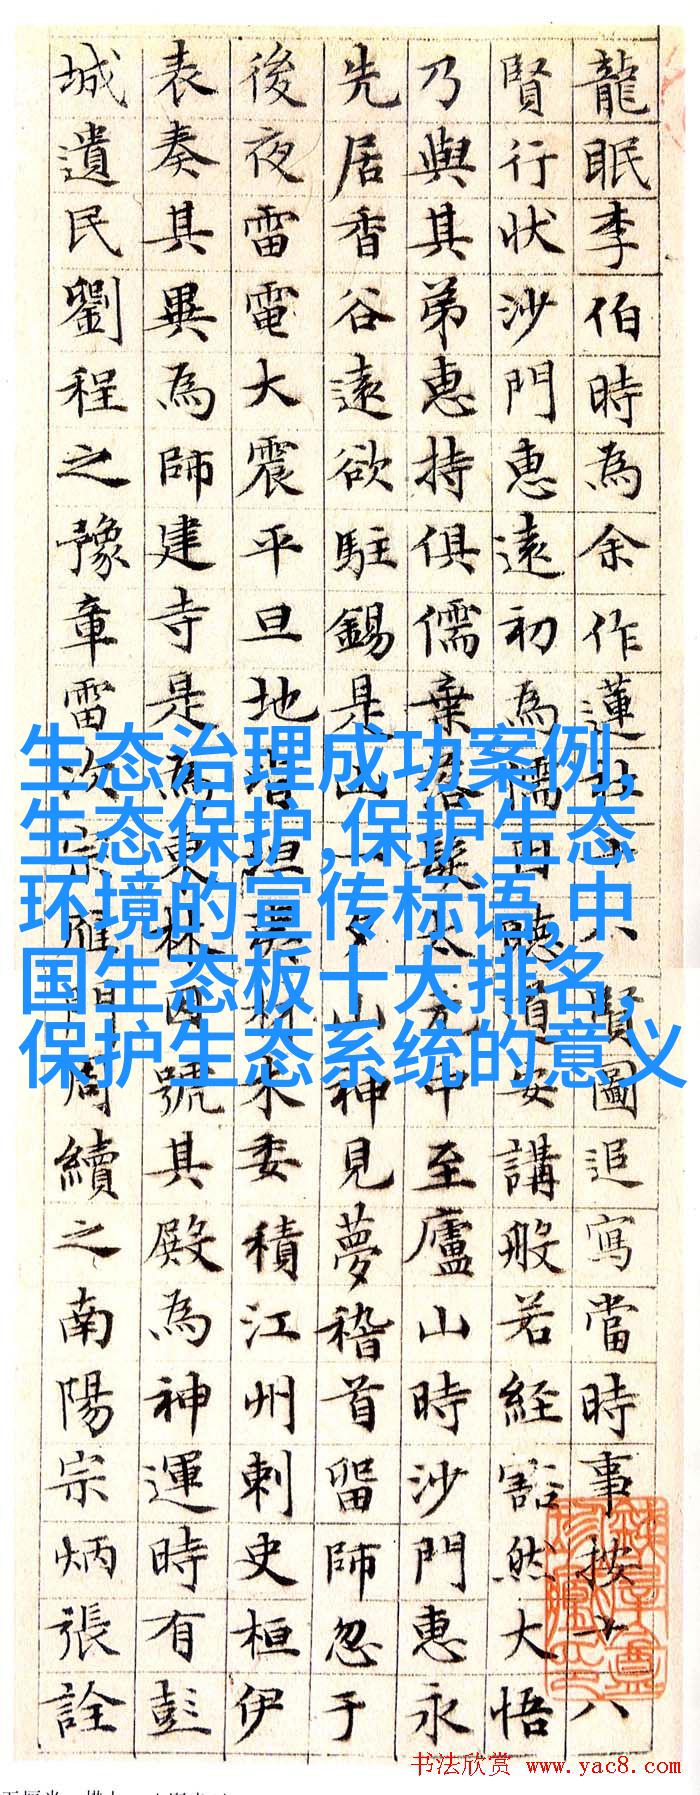 龍眠李伯時為余作蓮社十八賢圖追寫當時事按十八
賢行狀沙門惠遠初為儒因聽道安講般若経豁然大悟
乃與其弟惠持俱儒棄落髮太元中至廬山時沙門惠永
先居香谷遠欲駐錫是山一夕山神見夢稽首留師忽于
後夜雷電大震平旦地皆坦夷材木委積江州刺史桓伊
表奏其異為師建寺是為東林因號其殿為神運時有彭
城遺民劉程之豫章雷次宗雁門周續之南陽宗炳張詮
生态治理成功案例,
生态保护,保护生态
环境的宣传标语,中
国生态板十大排名,
保护生态系统的意义
书法欣赏 www.yac8.com